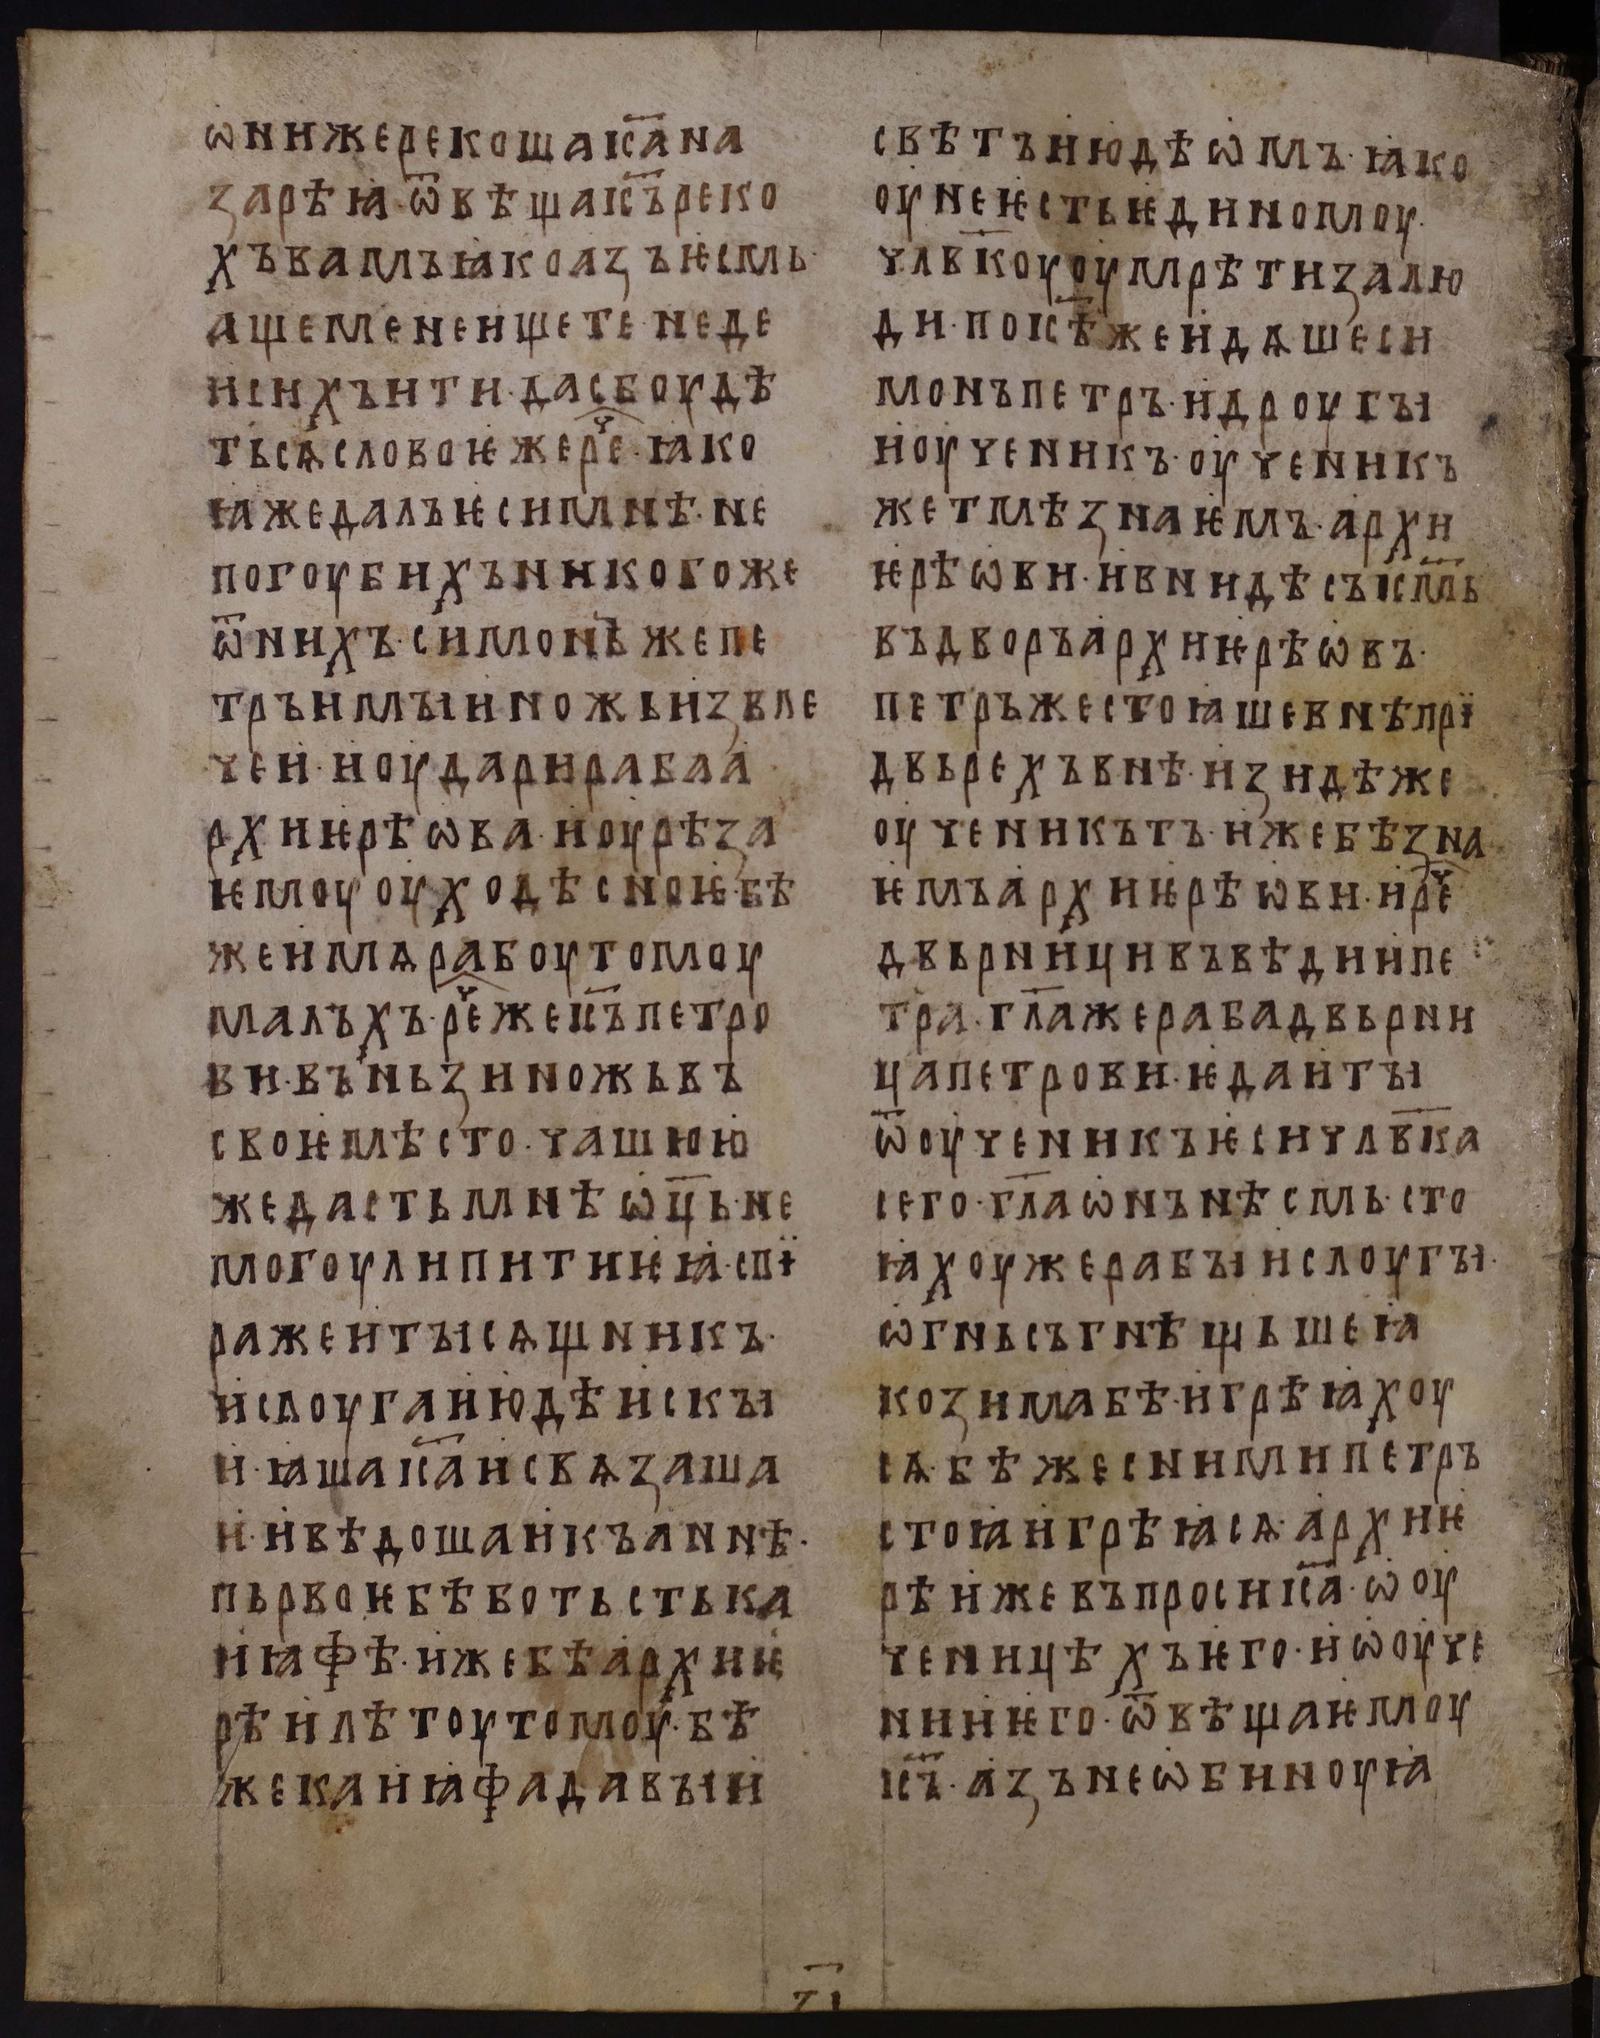 ѡнижерекошаіс҃ана
зарѣꙗ·ѿвѣщаіс҃ъреко
хъвамъꙗкоазъѥсмь·
ащеменеищете·неде
исихъити·дасбоудѣ
тьсѧсловоѥжереⷱ҇·ꙗко
ꙗжедалъѥсимнѣ·не
погоубихъникогоже
ѿнихъ·симонъжепе
тръимꙑиножьизвле
чеи·иоударирабаа
рхиѥрѣѡва·иоурѣза
ѥмоуоуходѣсноѥ·бѣ
жеимѧрабоутомоу
малъхъ·реⷱ҇жеіс҃ъпетро
ви·въньзиножьвъ
своѥмѣсто·чашюю
жедастьмнѣѡц҃ь·не
могоулипитиѥꙗ·спї
ражеитꙑсѧщникъ·
ислоугаиюдѣискꙑ
и·ꙗшаіс҃аисвѧзаша
и·ивѣдошаикъаннѣ·
пьрвоѥбѣботьстька
иꙗфѣ·ижебѣархиѥ
рѣилѣтоутомоу·бѣ
жекаиꙗфадавꙑи
свѣтъиюдѣѡмъ·ꙗко
оунеѥстьѥдиномоу·
чл҃вкоуоумрѣтизалю
ди·поіс҃ѣжеидѧшеси
монъпетръ·идроугꙑ
иоученикъ·оученикъ
жетъзнаѥмъ·архи
ѥрѣѡви·ивнидѣсъіс҃мь
въдворъархиѥрѣѡвъ·
петръжестоꙗшевнѣпрї
двьрехъвнѣ·изидѣже
оученикътъ·ижебѣзна
ѥмъархиѥрѣѡви·иреⷱ҇
двьрницивъвѣдиипе
тра·гл҃ажерабадвьрни
цапетрови·ѥдаитꙑ
ѿоученикъѥсичл҃вка
сего·гл҃аѡнънѣсмь·сто
ꙗхоужерабꙑислоугꙑ·
ѡгньсъгнѣщьшеꙗ
козимабѣ·игрѣꙗхоу
сѧ·бѣжеснимипетръ
стоꙗигрѣꙗсѧ·архиѥ
рѣижевъпросиіс҃а·ѡоу
ченицѣхъѥго·иѡоуче
нииѥго·ѿвѣщаѥмоу
іс҃ъ·азънеѡбиноуꙗ
з҃і